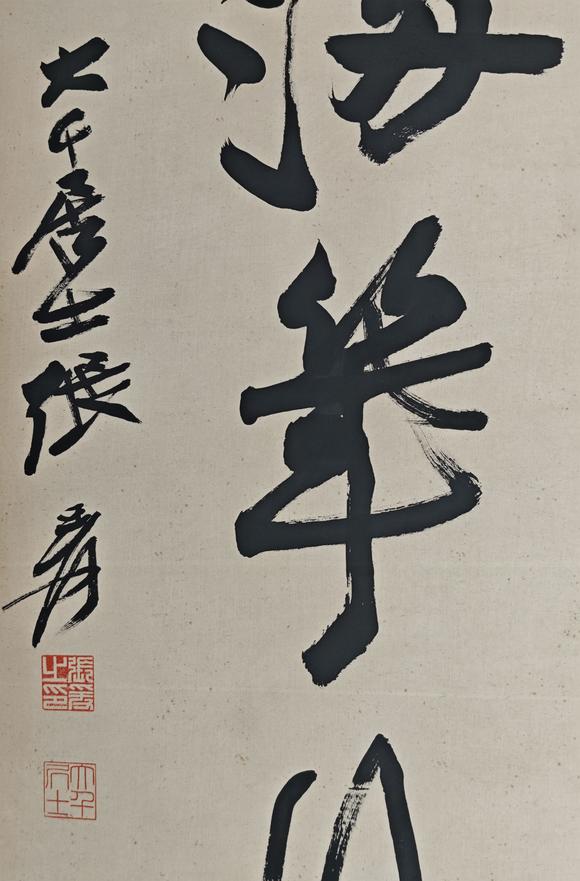 海
大千居士張爰
張爰之印
大千居士